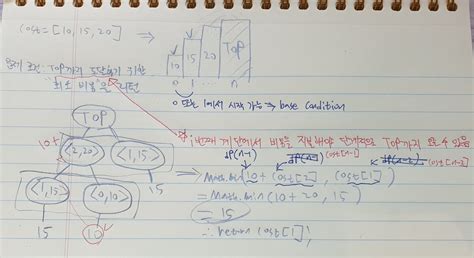 cost = [10, 15, 20] ⇒
10 15 20 TOP
0 1 ... n
문제 조건: TOP까지 도달하기 위한
"최소 비용"을 리턴
0 또는 1에서 시작 가능 ⇒ base condition
TOP
10+
<2,20>
<1,15>
<1,15>
<0,10>
15
15
10
i번째 계단에서 비용을 지불해야 단계적으로 TOP까지 오를 수 있음
dp(n-1) cost[n-1]
⇒ Math.min(10 + cost[2], cost[1])
= Math.min(10 + 20, 15)
= 15
∴ return cost[1];